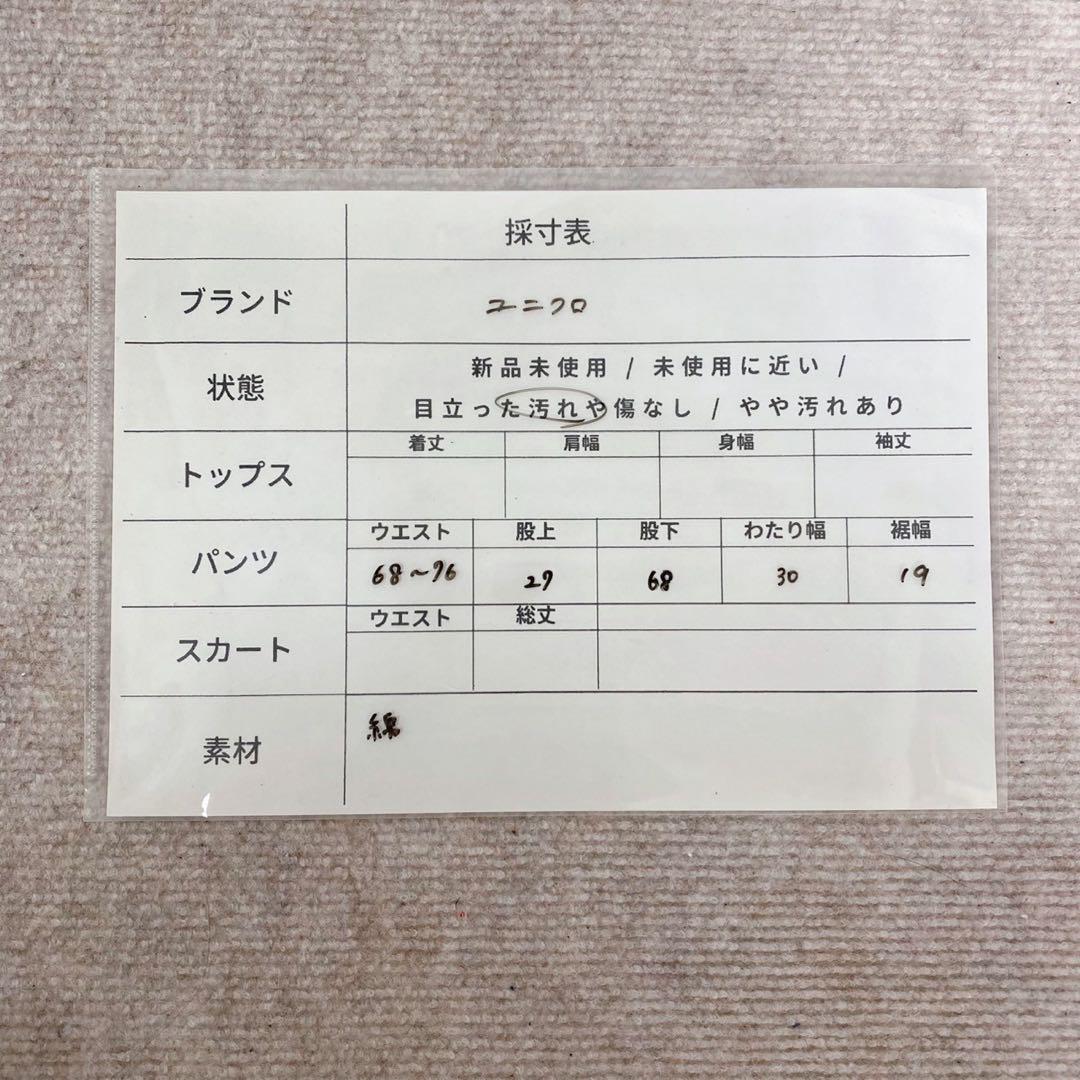 採寸表
ブランド ユニクロ
状態 新品未使用 / 未使用に近い /
目立った汚れや傷なし / やや汚れあり
トップス 着丈 肩幅 身幅 袖丈
パンツ ウエスト 股上 股下 わたり幅 裾幅
68~76 27 68 30 19
スカート ウエスト 総丈
素材 綿